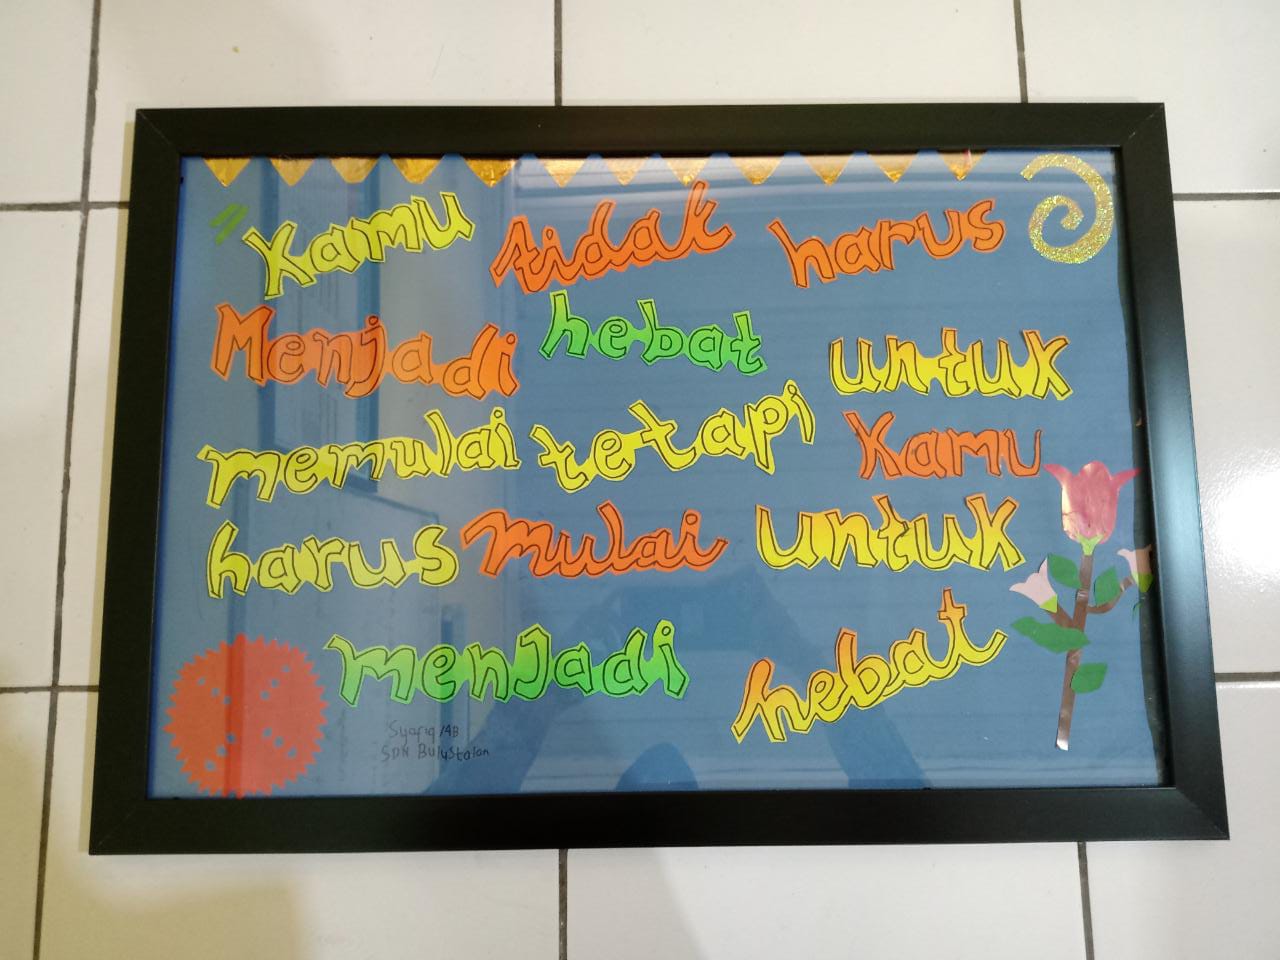 Kamu tidak harus
Menjadi hebat untuk
memulai tetapi Kamu
harus mulai untuk
menjadi hebat
Syafiq /4B
SDN Bulustalan